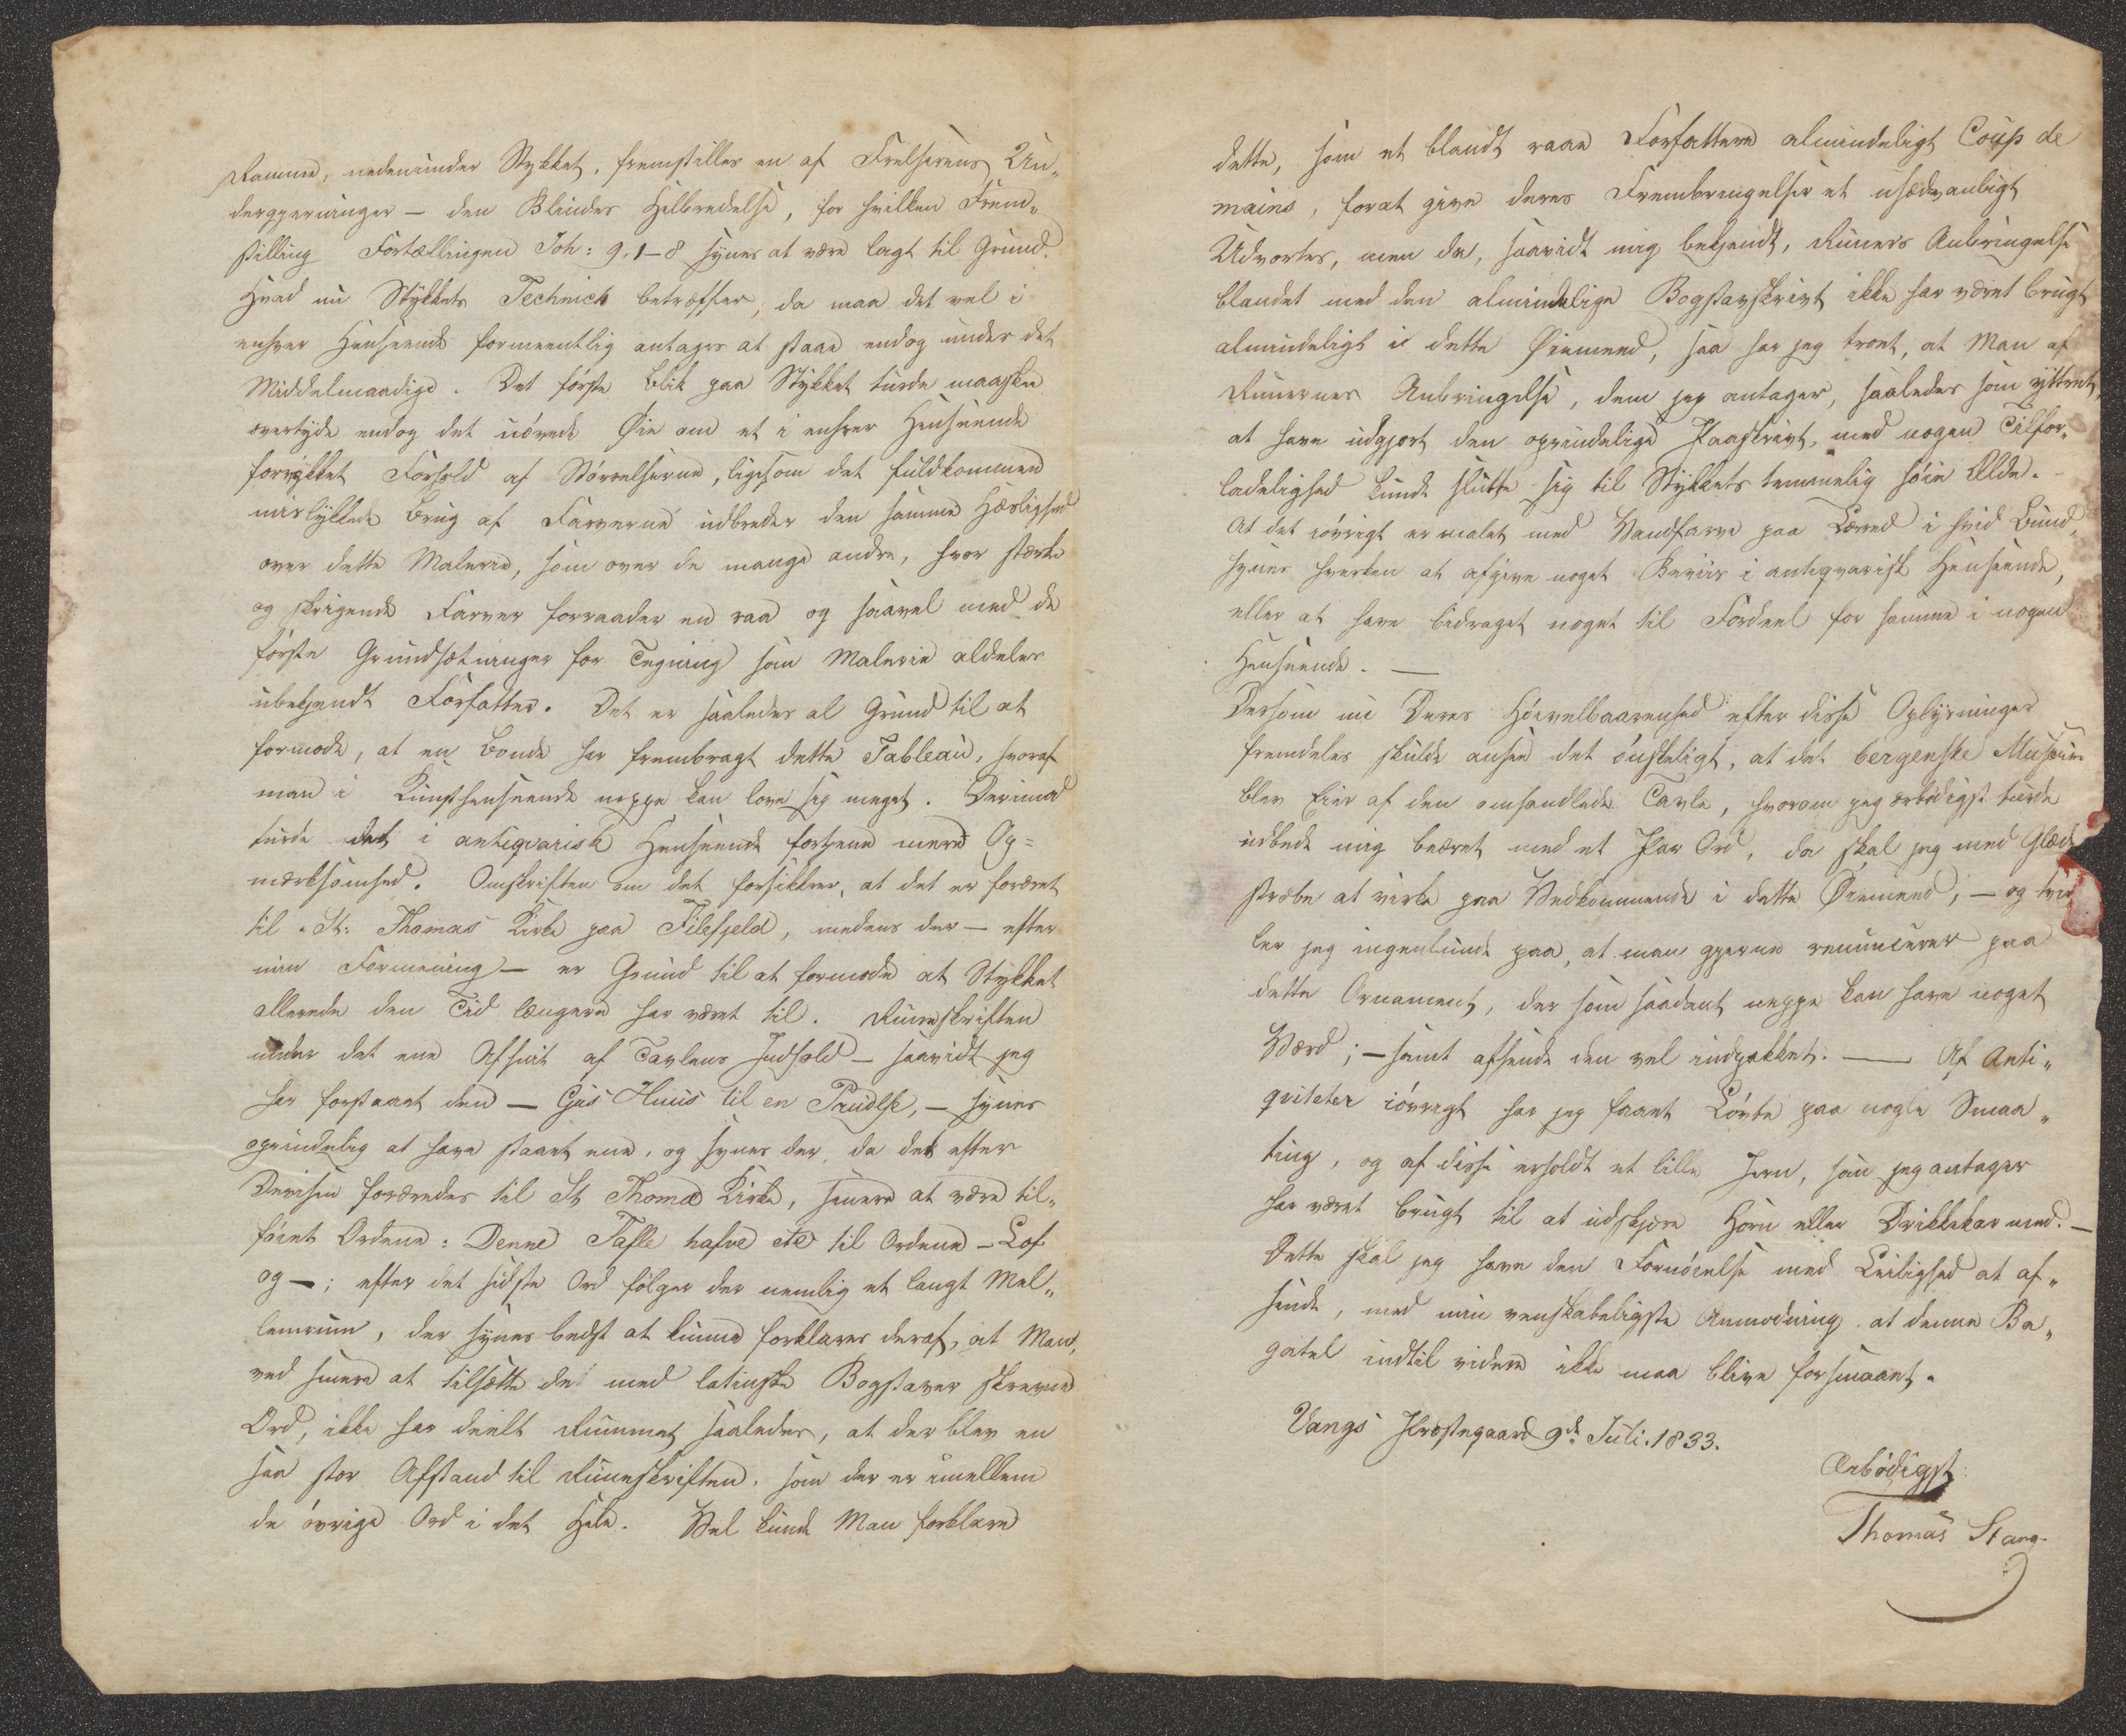 Ramme, nedenunder Stykket, fremstilles en af Frelserens Un„
dergjerninger – den Blindes Helbredelse, for hvilken Frem„
stilling Fortællingen Joh: 9. 1–8 synes at være lagt til Grund.
Hvad nu Stykkets Technick betræffer, da maa det vel i
enhver Henseende formeentlig antages at staae endog under det
Middelmaadige. Det første Blik paa Stykket turde maaskee
overtyde endog det uövede Öie om et i enhver Henseende
forrykket Forhold af Störrelserne, ligesom det fuldkommen
mislykkede Brug af Farverne udbreder den samme Hæslighed
over dette Malerie, som over de mange andre, hvor stærke
og skrigende Farver forraader en raa og saavel med de
förste Grundsætninger for Tegning som Malerie aldeles
ubekjendt Forfatter. Det er saaledes al Grund til at
formode, at en Bonde har frembragt dette Tableau, hvoraf
man i Kunsthenseende neppe kan love sig meget. Derimod
turde det i antiqvarisk Henseende fortjene mere Op=
mærksomhed. Omskriften om det forsikkrer, at det er foræret
til St: Thomas Kirke paa Filefjeld, medens der – efter
min Formening – er Grund til at formode at Stykket
allerede den Tid længere har været til. Runeskriften
under det ene Afsnit af Tavlens Indhold – saavidt jeg
har forstaaet den – Gus Huus til en Prudlse, – synes
oprindelig at have staaet ene, og synes der, da det efter
Devisen foræredes til St Thomæ Kirke, senere at være til„
föiet Ordene: Denne Tafle hafve etc til Ordene – Lof
og –; efter det sidste Ord fölger der nemlig et langt Mel„
lemrum, der synes bedst at kunne forklares deraf, at Man,
ved senere at tilsætte de med latinske Bogstaver skrevne
Ord, ikke har deelt Rummet saaledes, at der blev en
saa stor Afstand til Runeskriften, som der er imellem
de övrige Ord i det Hele. Vel kunde Man forklare
dette, som et blandt raae Forfattere almindeligt Coup de
mains, forat give deres Frembringelser et usædvanligt
Udvortes, men da, saavidt mig bekjendt, Runers Anbringelse
blandet med den almindelige Bogstavskrivt ikke har været brugt
almindeligt i dette Öiemeed, saa har jeg troet, at Man af
Runernes Anbringelse, dem jeg antager, saaledes som yttret,
at have udgjort den oprindelige Paaskrivt, med nogen Tilfor„
ladelighed kunde slutte sig til Stykkets temmelig höie Ælde. –
At det iövrigt er malet med Vandfarve paa Lærred i hvid Bund,
synes hverken at afgive noget Beviis i antiqvarisk Henseende,
eller at have bidraget noget til Fordeel for samme i nogen
Henseende. –
Dersom nu Deres Höivelbaarenhed efter disse Oplysninger
fremdeles skulde ansee det önskeligt, at det bergenske Museum
blev Eier af den omhandlede Tavle, hvorom jeg ærbödigst turde
udbede mig beæret med et Par Ord, da skal jeg med Glæde
stræbe at virke paa Vedkommende i dette Öiemeed, – og tviv
ler jeg ingenlunde paa, at man gjerne renuncerer paa
dette Ornament, der som saadant neppe kan have noget
Værd; – samt afsende den vel indpakket. — Af Anti„
qviteter iövrigt har jeg faaet Löfte paa nogle Smaa„
ting, og af disse erholdt et lille Jern, som jeg antager
har været brugt til at udskjære Horn eller Drikkekar med. –
Dette skal jeg have den Fornöielse med Leilighed at af„
sende, med min venskabeligste Anmodning at denne Ba„
gatel indtil videre ikke maa blive forsmaaet.
Vangs Præstegaard 9de Juli. 1833.
Ærbödigst
Thomas Stang.